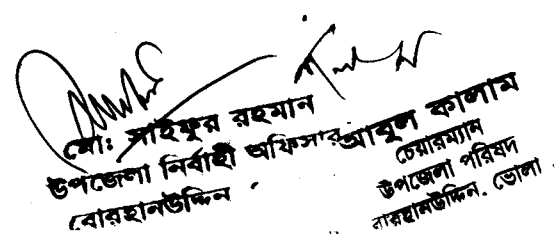 মো: সাইফুর রহমান
উপজেলা নির্বাহী অফিসার
বোরহানউদ্দিন
আবুল কালাম
চেয়ারম্যান
উপজেলা পরিষদ
বোরহানউদ্দিন, ভোলা